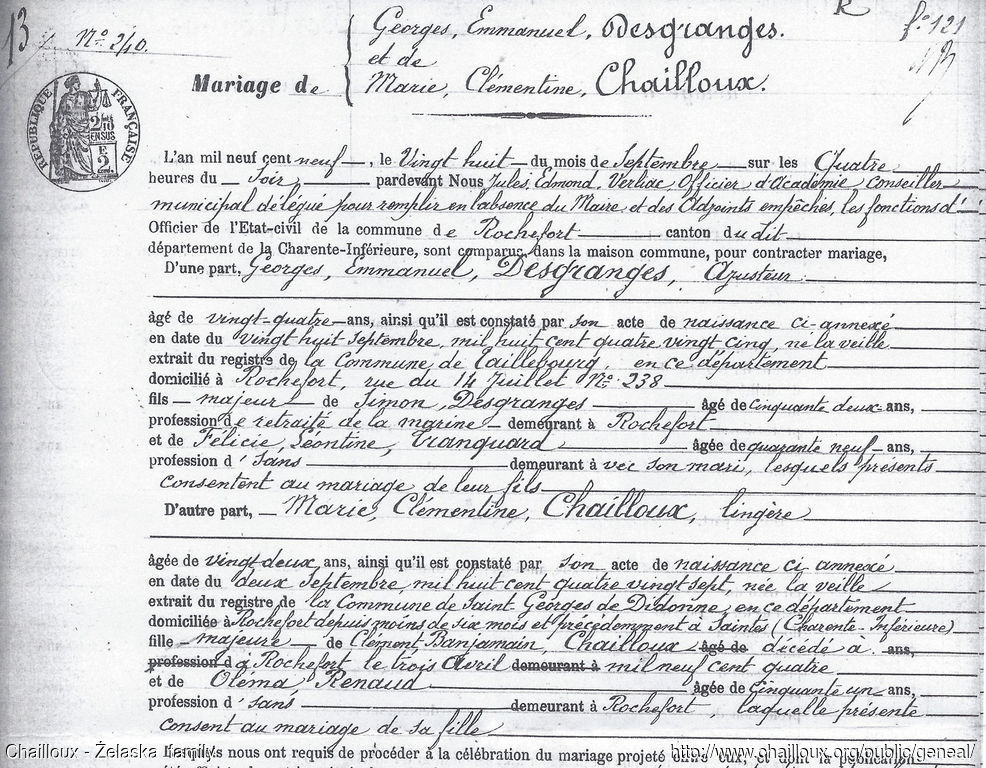 13 N° 240.
Georges, Emmanuel, Desgranges.
f° 121
et de
Mariage de
Marie, Clémentine, Chailloux.
RÉPUBLIQUE FRANÇAISE
2/10 EN SUS
F 2 Cent.
L'an mil neuf cent neuf, le Vingt huit du mois de Septembre sur les Quatre
heures du Soir pardevant Nous Jules, Edmond, Verliac, Officier d'Académie, Conseiller
municipal délégué pour remplir en l'absence du Maire et des Adjoints empêchés, les fonctions d'
Officier de l'Etat-civil de la commune de Rochefort canton dudit
département de la Charente-Inférieure, sont comparus, dans la maison commune, pour contracter mariage,
D'une part, Georges, Emmanuel, Desgranges, Ajusteur
âgé de vingt-quatre ans, ainsi qu'il est constaté par son acte de naissance ci-annexé
en date du Vingt huit Septembre, mil huit cent quatre vingt cinq, né la veille
extrait du registre de la Commune de Taillebourg, en ce département
domicilié à Rochefort, rue du 14 Juillet N° 238
fils majeur de Simon, Desgranges âgé de cinquante deux ans,
profession de retraité de la marine demeurant à Rochefort
et de Félicie, Léontine, Tranquard âgée de quarante neuf ans,
profession d' sans demeurant à vec son mari, lesquels présents
consentent au mariage de leur fils
D'autre part, Marie, Clémentine, Chailloux, lingère
âgée de vingt-deux ans, ainsi qu'il est constaté par son acte de naissance ci annexé
en date du deux Septembre, mil huit cent quatre vingt sept, née la veille
extrait du registre de la Commune de Saint Georges de Didonne, en ce département
domiciliée à Rochefort depuis moins de six mois et précédemment à Saintes (Charente-Inférieure)
fille majeure de Clément, Banjamain, Chailloux âgé de décédé à ans,
profession d à Rochefort le trois Avril demeurant à mil neuf cent quatre
et de Oléma Renaud âgée de Cinquante un ans,
profession d' sans demeurant à Rochefort, laquelle présente
consent au mariage de sa fille
Lesquels nous ont requis de procéder à la célébration du mariage projeté entre eux, et dont la publication
Chailloux - Żelaska family
http://www.chailloux.org/public/geneal/